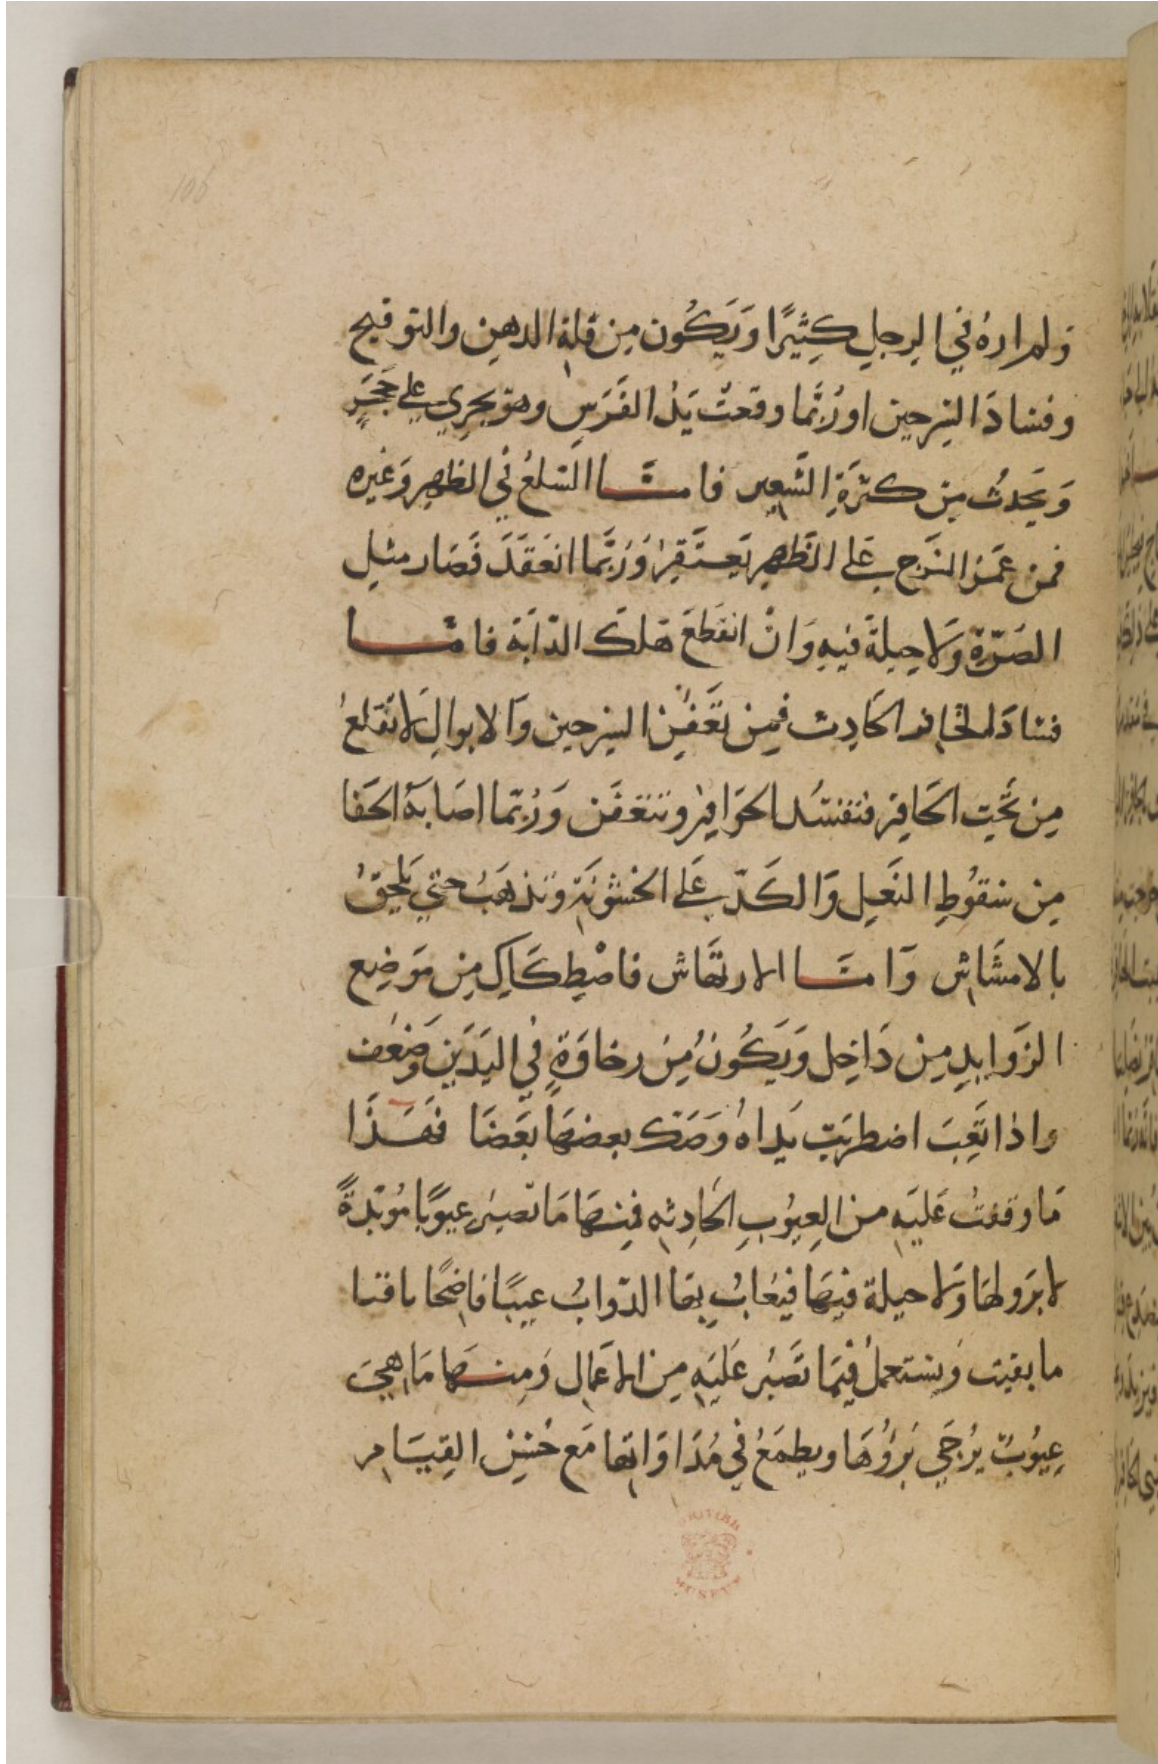 ولم اره في الرجل كثيرًا وَيَكُون مِن قلة الدهن والتوقيح
وفسادَ السرجين اورُبَّما وقعتْ يَدُ الفَرَسِ وهوَ يجرِي على حَجَرٍ
وَيَحدثُ مِن كثرَةِ الشَّعِير فامَّا السّلعُ في الظهرِ وَغيره
فمن غَمز السَّرج عَلى الظَهرِ يَعتَقِرُ وَرُبَّما انعَقَدَ فَصَار مثل
الصُرّة وَلا حِيلةَ فيهِ وَانْ انقَطعَ هَلكَ الدّابَة فامَّا
فسَادَ الحَادِث فمِن تَعَفّن السِرجين وَالابوالِ لا تقلعُ
مِن تَحْتِ الحَافِر فتفسُد الحَوَافِرُ وتتعَفَّن وَرُبّما اصَابَهُ الحَفا
مِن سُقوُطِ النَعلِ وَالكَدّ عَلى الخشوُنَة وتذهَبُ حتى يَلحَقُ
بالامشَاش وَامَّا الارتهَاش فاصْطِكَاك مِن مَوضِع
الزَوايدِ مِن دَاخِل وَيَكُونُ مِن رخاوَةٍ في اليَدَين وَضَعْف
واذا تَعِبَ اضطربَتْ يَدَاهُ وَصَكّ بعضهَا بَعضَا فهَذَا
مَا وقفتُ عَليَهِ من العِيوُبِ الحَادِثهِ فمِنهَا مَا تصيرُ عيوُبًا مُوبّدةً
لا برَولهَا وَلا حيلة فيهَا فيُعَابُ بِهَا الدّوابُ عيبًا فاضِحًا باقيا
ما بقيت وَيستعملُ فيمَا تَصبُر عَليَهِ مِن الاعمَالِ وَمِنهَا مَا هِيَ
عِيوُبٌ يُرجَي بَرؤُهَا ويطمَعُ في مُدَاوَاتهَا مَع حُسْنِ القِيَام
BRITISH
MUSEUM